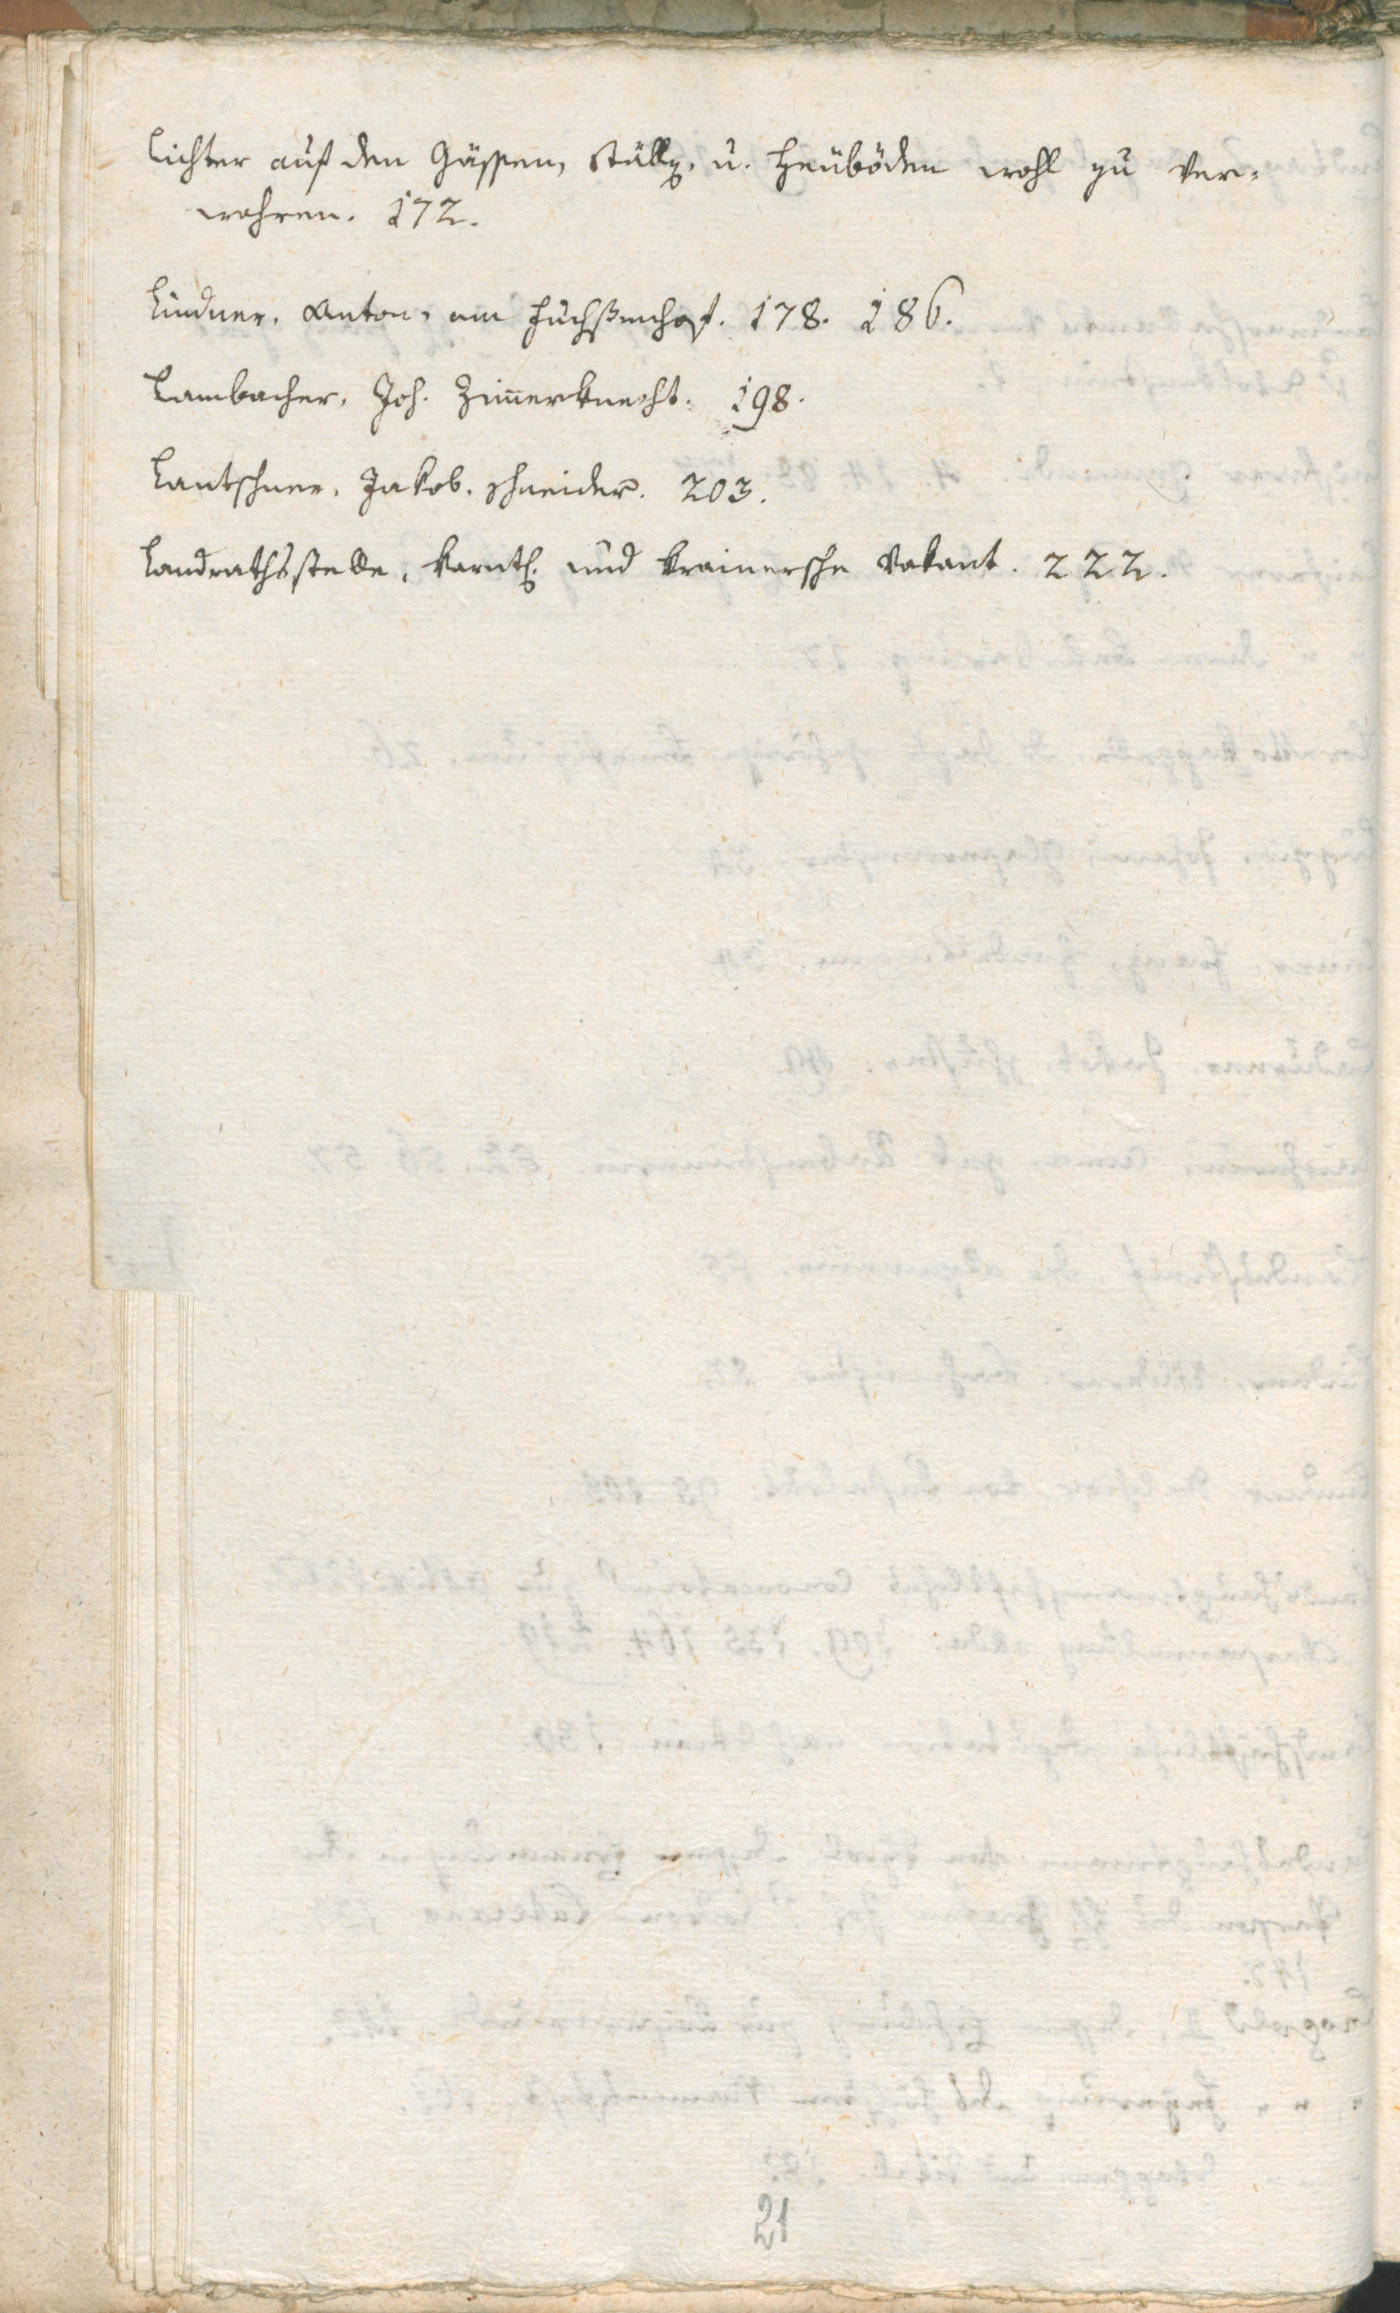 Lichter auf den Gässen, Ställen, u. Heüböden wohl zu ver-
wahren. 172.
Lindner, Anton, am Fuchßenhof. 178. 186.
Lambacher, Joh. Zim̅erknecht. 198.
Lantschner, Jakob. Schneider. 203.
Landrathsstelle, karntl. und krainersche vakant. 222.
21